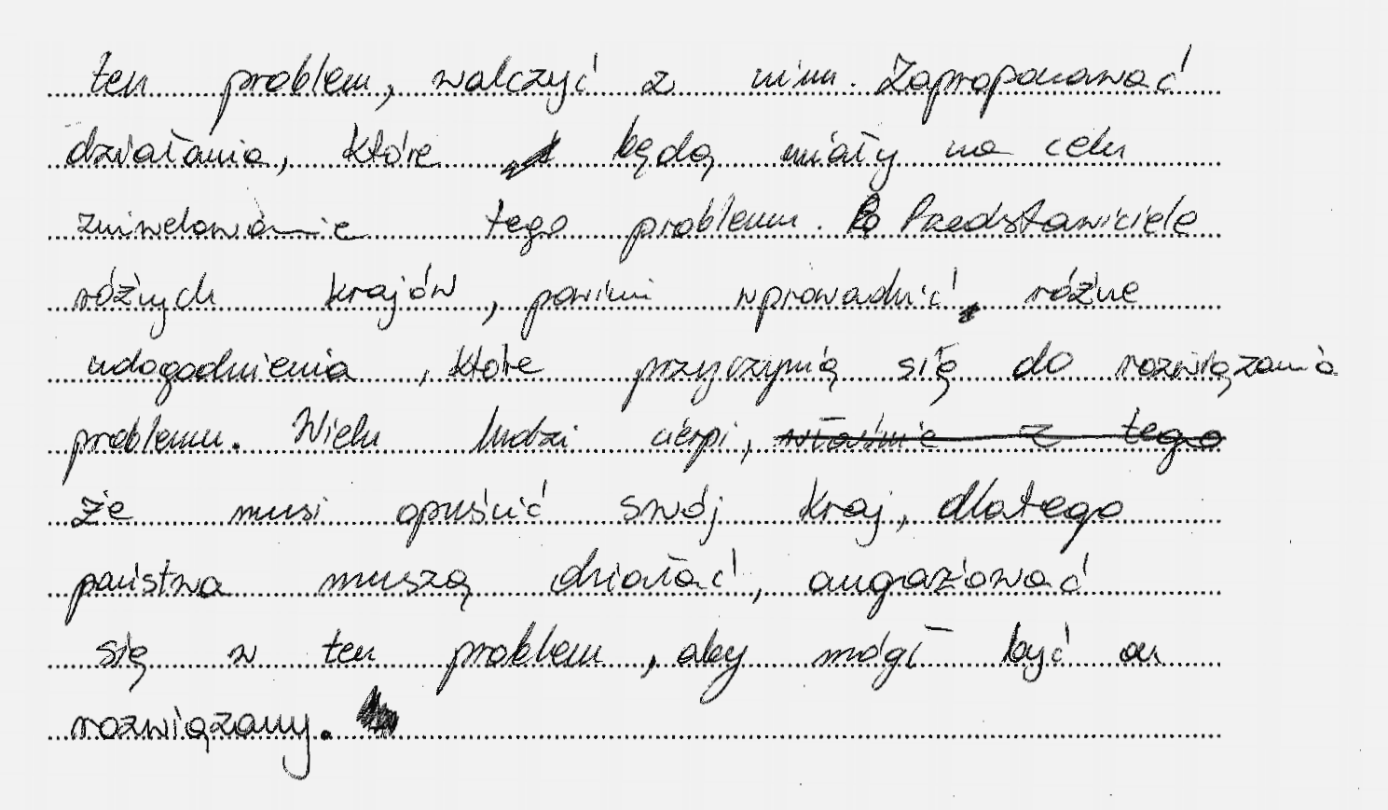 ten problem, walczyć z nim. Zaproponować
działania, które będą miały na celu
zniwelowanie tego problemu. Przedstawiciele
różnych krajów, powinni wprowadzić, różne
udogodnienia, które przyczynią się do rozwiązania
problemu. Wielu ludzi cierpi, ~~właśnie z tego~~
że musi opuścić swój kraj, dlatego
państwa muszą działać, angrażować
się w ten problem, aby mógł być on
rozwiązany.